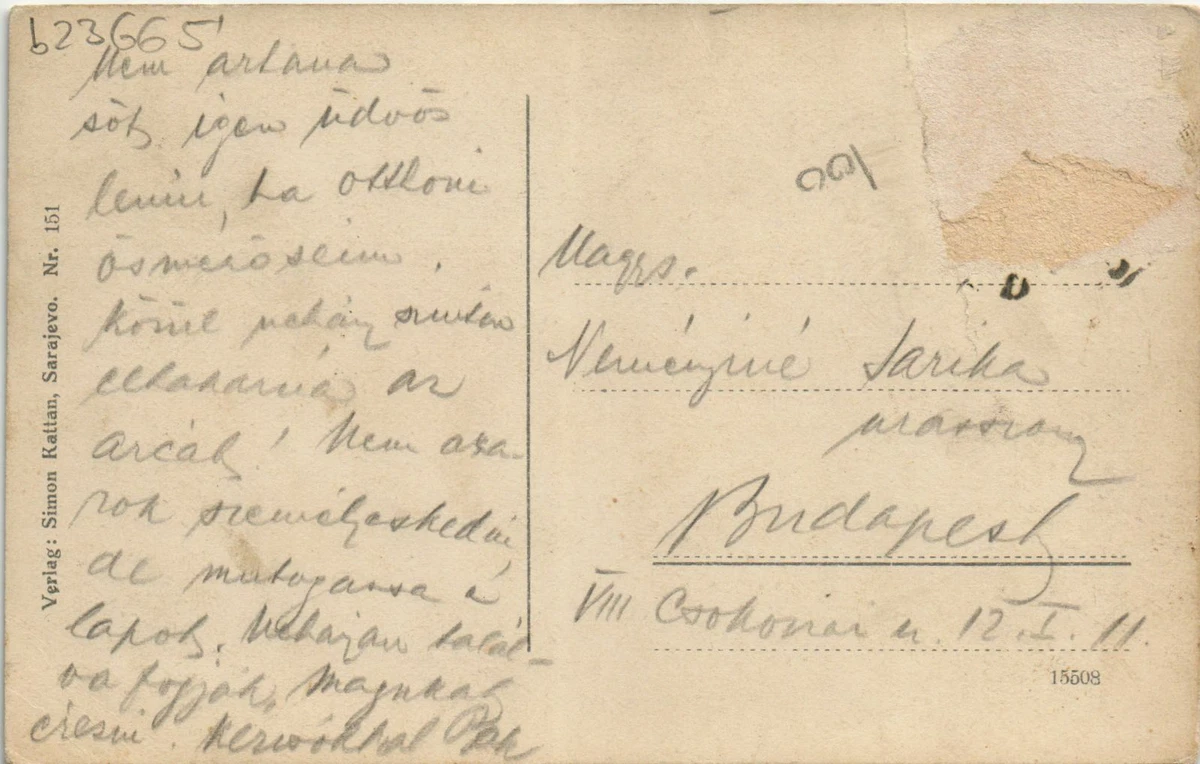 b23665
Nem ártana
sőt igen üdvös
lenne, ha otthoni
ösmerőseim
közül nehány szintén
eltakarná az
arcát! Nem aka-
rok személyeskedni,
de mutogassa e
lapot. Nehányan talál-
va fogják magukat
érezni. Kézcsókkal
Verlag: Simon Kattan, Sarajevo. Nr. 151
Nagys.
Neményiné Sarika
urasszony
Budapest
VIII Csokonai u. 12. I. 11.
15508